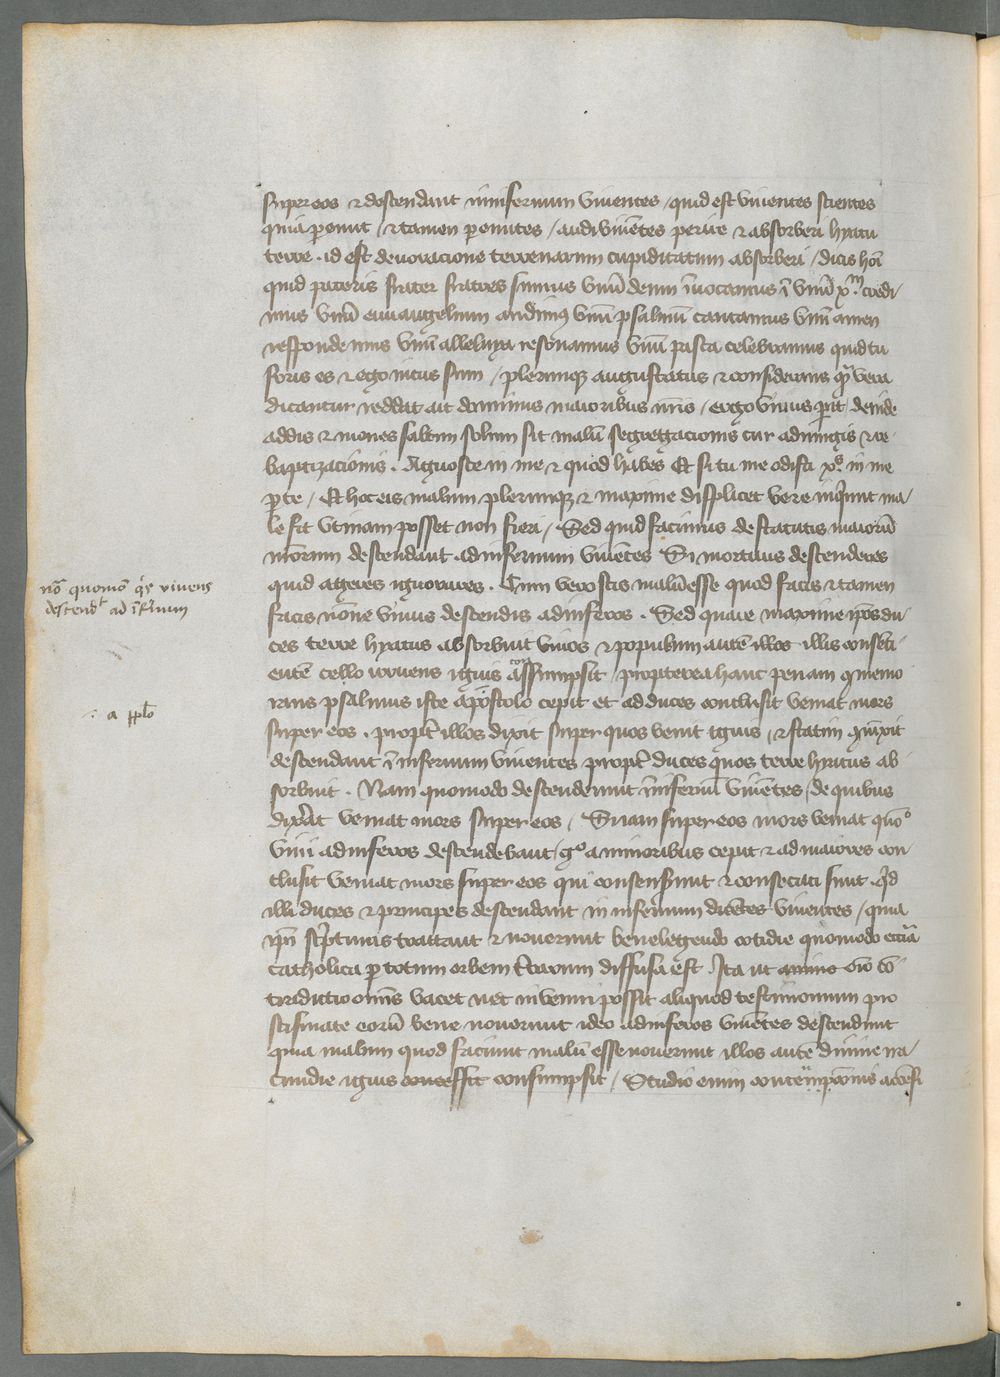 super eos ⁊ descendant in infernum viventes / quid est viventes scientes
quia pereunt / ⁊ tamen pereuntes / audi viuētes perire ⁊ absorberi hyatu
terre . id est deuoracione terrenarum cupiditatum absorberi / dicis hōi
quid pateris frater fratres sumus vnū deum īuocamus ī vnū xp̄m credi-
mus vnū euuangelium audimꝰ vnū psalmū cantamus vnū amen
respondemus vnū alleluya resonamus vnū pasca celebramus quid tu
foris es ⁊ ego intus sum / plerumqꝫ angustatus ⁊ considerans qͣ vera
dicantur reddat ait dominus maioribus nr̄is / ergo viuus perit deinde
addis ⁊ mones saltem solum sit malū segregacionis cur adiungis ⁊ re-
baptizacionis . Agnosce in me ⁊ quod habes Et si tu me odisti xp̄o in me
parce / Et hoc eis malum plerumqꝫ ⁊ maxime displicet vere inquiunt ma/
le fit vtinam posset non fieri / Sed quid facimus de statutis maiorū
nostrorum descendant ad infernum viuētes Si mortuus descenderes
quid ageres ignorares . Cum vero scis malū esse quod facis ⁊ tamen
facis nōne viuus descendis ad inferos . Sed quare maxime ipōs du-
ces terre hyatus absorbuit viuos ⁊ populum autē illos illis consēti-
entē cello irruens ignis cōssumpsit / propterea hanc penam ꝯmemo
rans psalmus iste a populo cepit et ad duces conclusit veniat mors
super eos . propt̄ illos dixit super quos venit ignis / ⁊ statim ꝯiunxit
descendant ī infernum viuentes propt̄ duces quos terre hyatus ab
sorbuit . Nam quomodo descenderunt ī infernū viuētes / de quibus
dixerat veniat mors super eos / Si iam super eos mors veniat quōo
viui ad inferos descendebant / gͦ a minoribus cepit ⁊ ad maiores con
clusit veniat mors super eos qui consenserunt ⁊ consecuti sunt . Qd
illi duces ⁊ principes descendant in infernum dicētes viuentes / quia
ipī scripturas tractant ⁊ nouerunt bene legendo cotidie quomodo ecclīa
catholica per totum orbem terrarum diffusa est . Ita ut animo oīo cō
tradictio omīs vacet nec inveniri possit aliquod testimonium pro
scismate eorū bene nouerunt ideo ad inferos viuētes descendunt
quia malum quod faciunt malū esse nouerunt illos autē diuine ira-
cundie ignis concessit consumpsit / Studio enim contēpcionis accēsi
nōͣ quomō qͥs viuens
descendͭ ad īfernum
∴ a ppl̄o